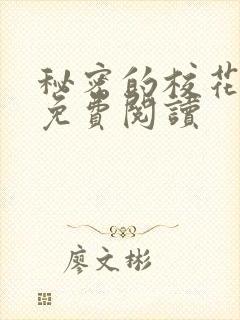 秘密的校花
免費閱讀
廖文彬